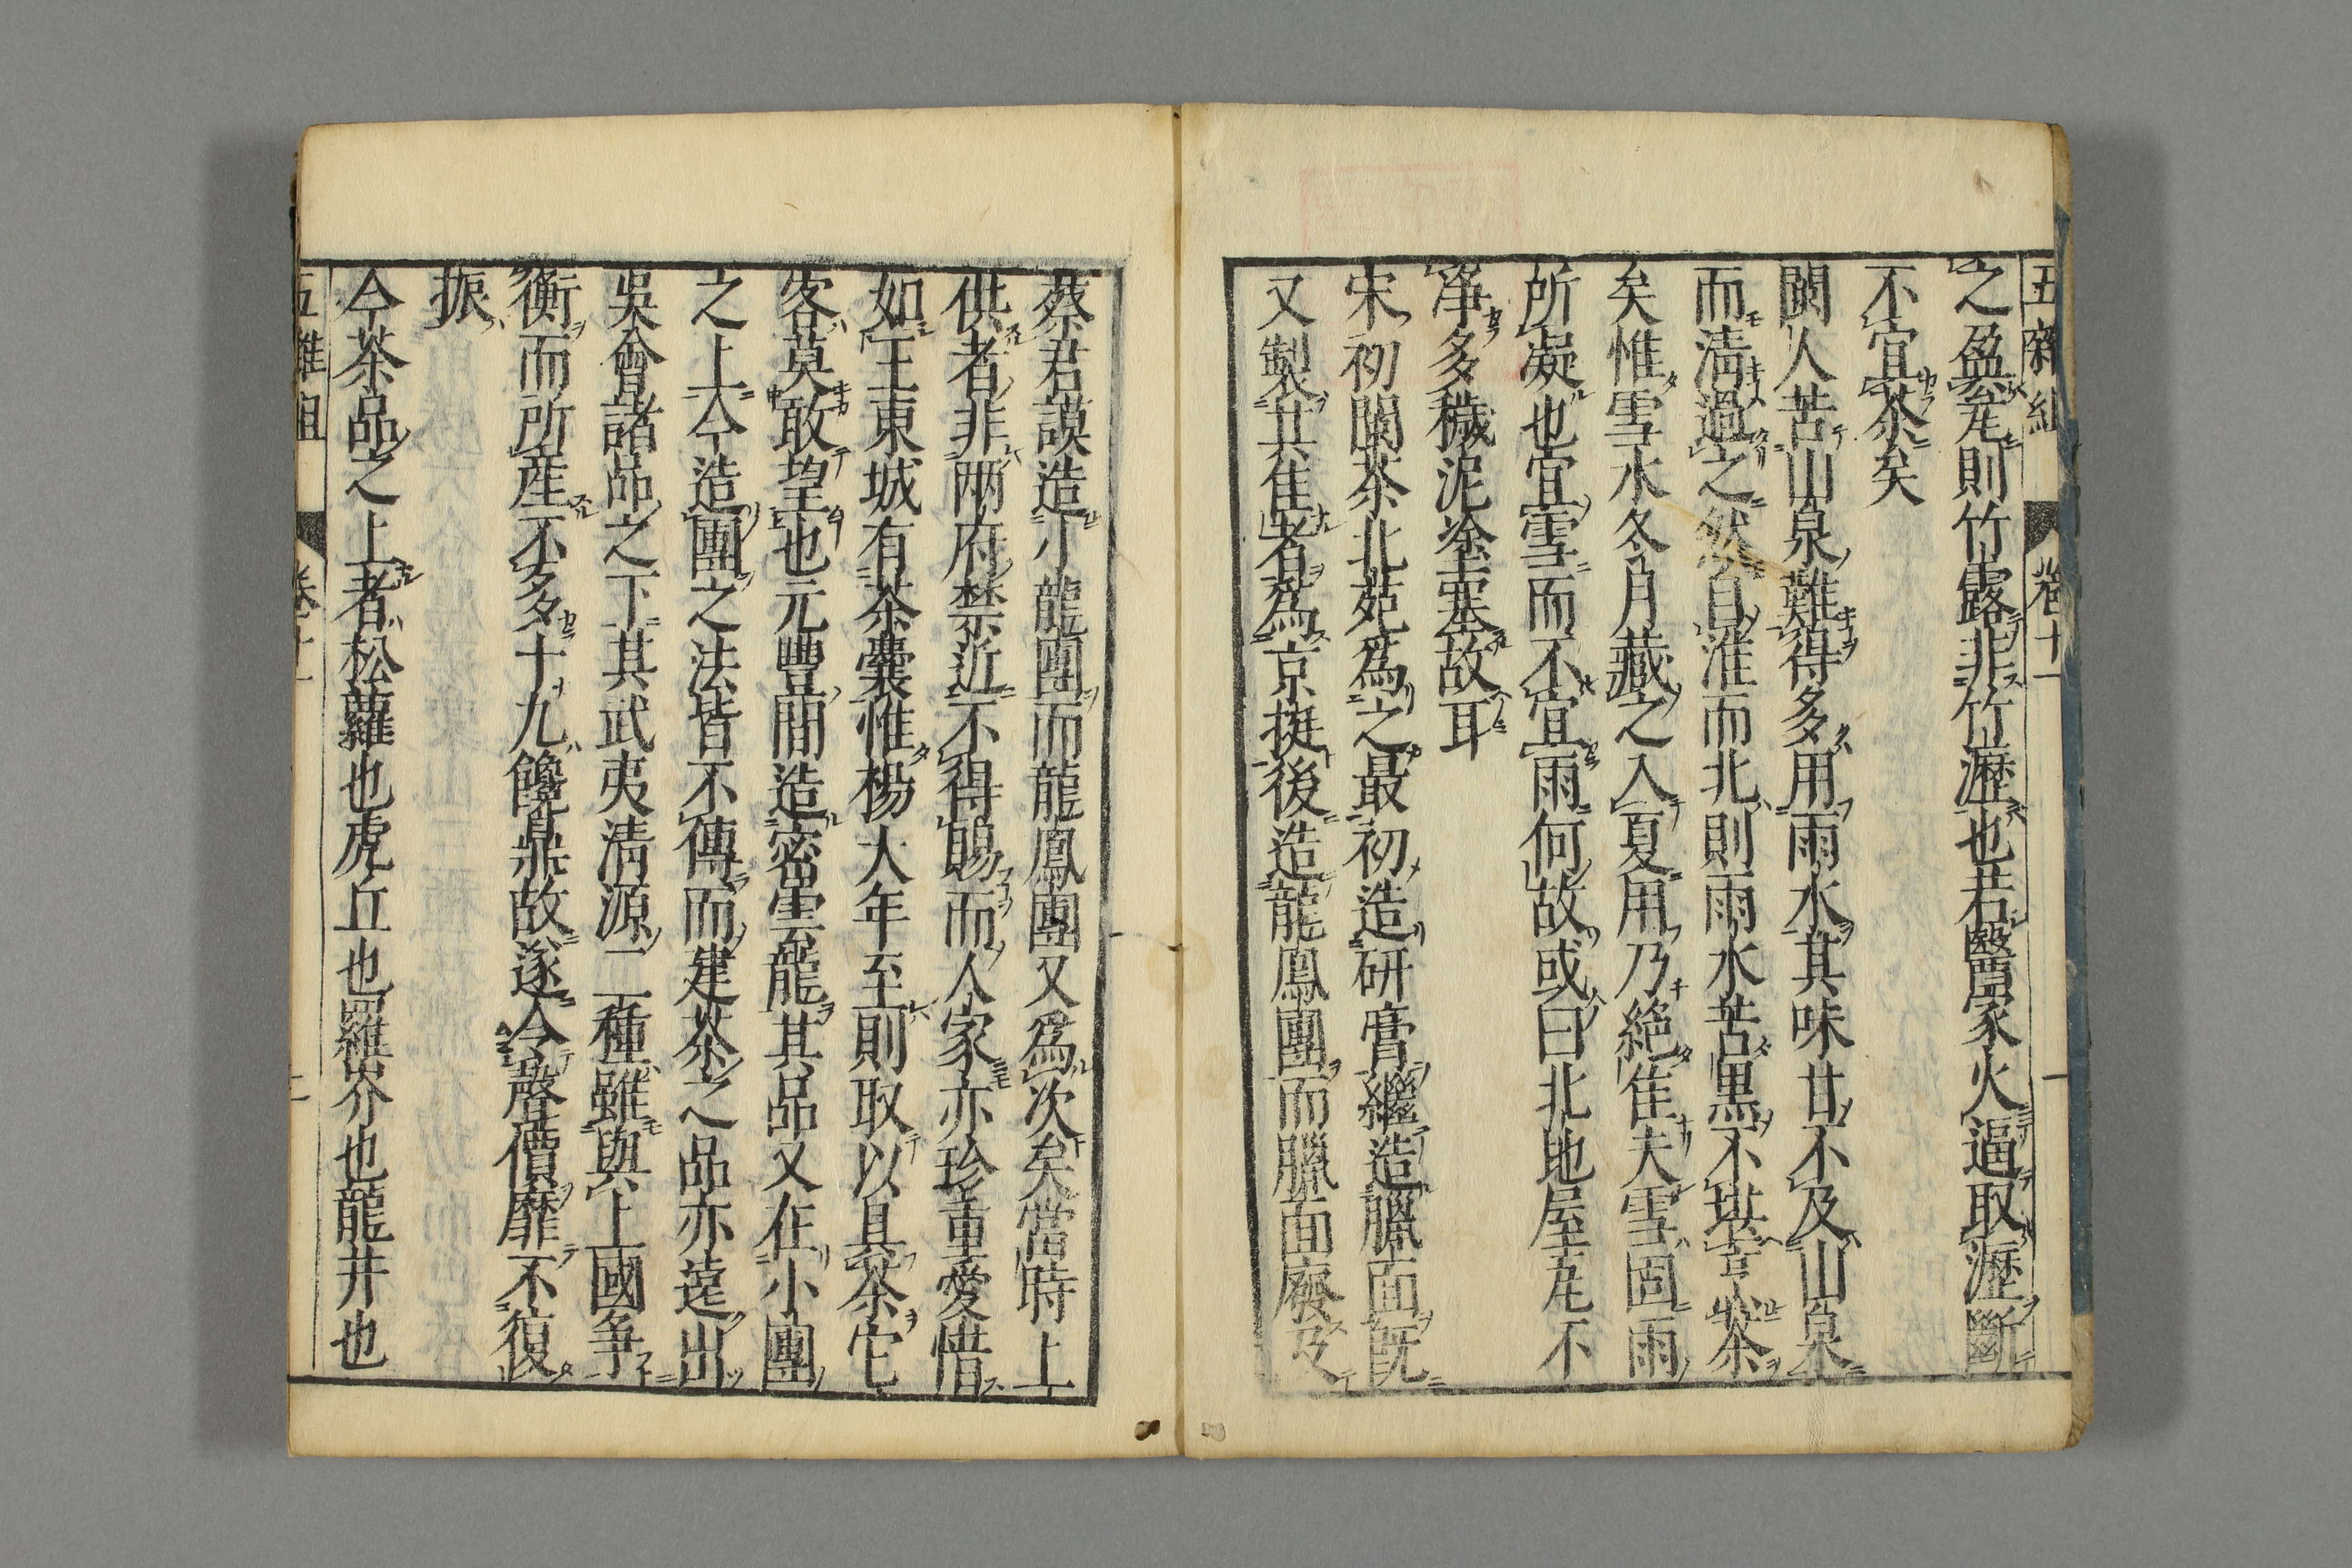 五雜組 卷十一 一
之盈㼝則竹露非竹瀝也若醫家火逼取瀝斷
不宜茶矣
閩人苦山泉難得多用雨水其味甘不及山泉
而淸過之然自淮而北則雨水苦黒不堪烹茶
矣惟雪水冬月藏之入夏用乃絶佳夫雪固雨
所凝也宜雪而不宜雨何故或曰北地屋瓦不
淨多穢泥塗塞故耳
宋初閩茶北苑爲之最初造研膏繼造臘面旣
又製其佳者爲京挺後造龍鳳團而臘面廢及
蔡君謨造小龍團而龍鳳團又爲次矣當時上
供者非兩府禁近不得賜而人家亦珍重愛惜
如王東城有茶囊惟楊大年至則取以具茶它
客莫敢望也元豐間造密雲龍其品又在小團
之上大今造團之法皆不傳而建茶之品亦遠出
吳會諸品之下其武夷淸源二種雖與上國爭
衡而所產不多十九饞鼎故遂令聲價靡不復
振
今茶品之上者松蘿也虎丘也羅岕也龍井也
五雜組 卷十一 二